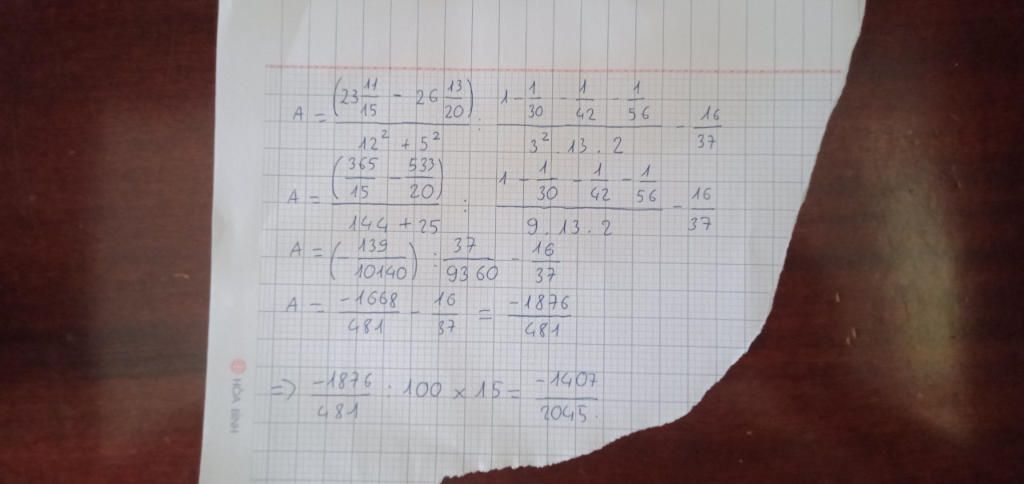 A = (23 11/15 - 26 13/20) / (12² + 5²) : (1 - 1/30 - 1/42 - 1/56) / (3² . 13 . 2) - 16/37
A = (365/15 - 533/20) / (144 + 25) : (1 - 1/30 - 1/42 - 1/56) / (9 . 13 . 2) - 16/37
A = (- 139/10140) : 37/9360 - 16/37
A = -1668/481 - 16/37 = -1876/481
=> -1876/481 : 100 × 15 = -1407/2045.
HÒA BÌNH